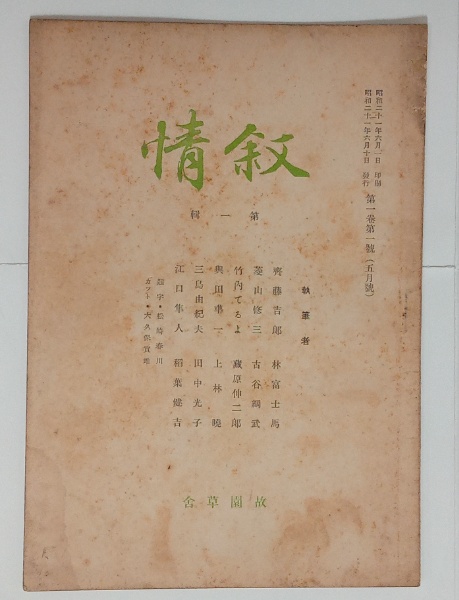 昭和二十一年六月一日 印刷
昭和二十一年六月十日 發行
第一卷第一號（五月號）
叙情
第一輯
執筆者
齊藤吉郎 林富士馬
菱山修三 古谷綱武
竹內てるよ 藏原伸二郎
與田凖一 上林曉
三島由紀夫 田中光子
江口隼人 稻葉健吉
題字・
カツト・大久保實雄
故園草舍